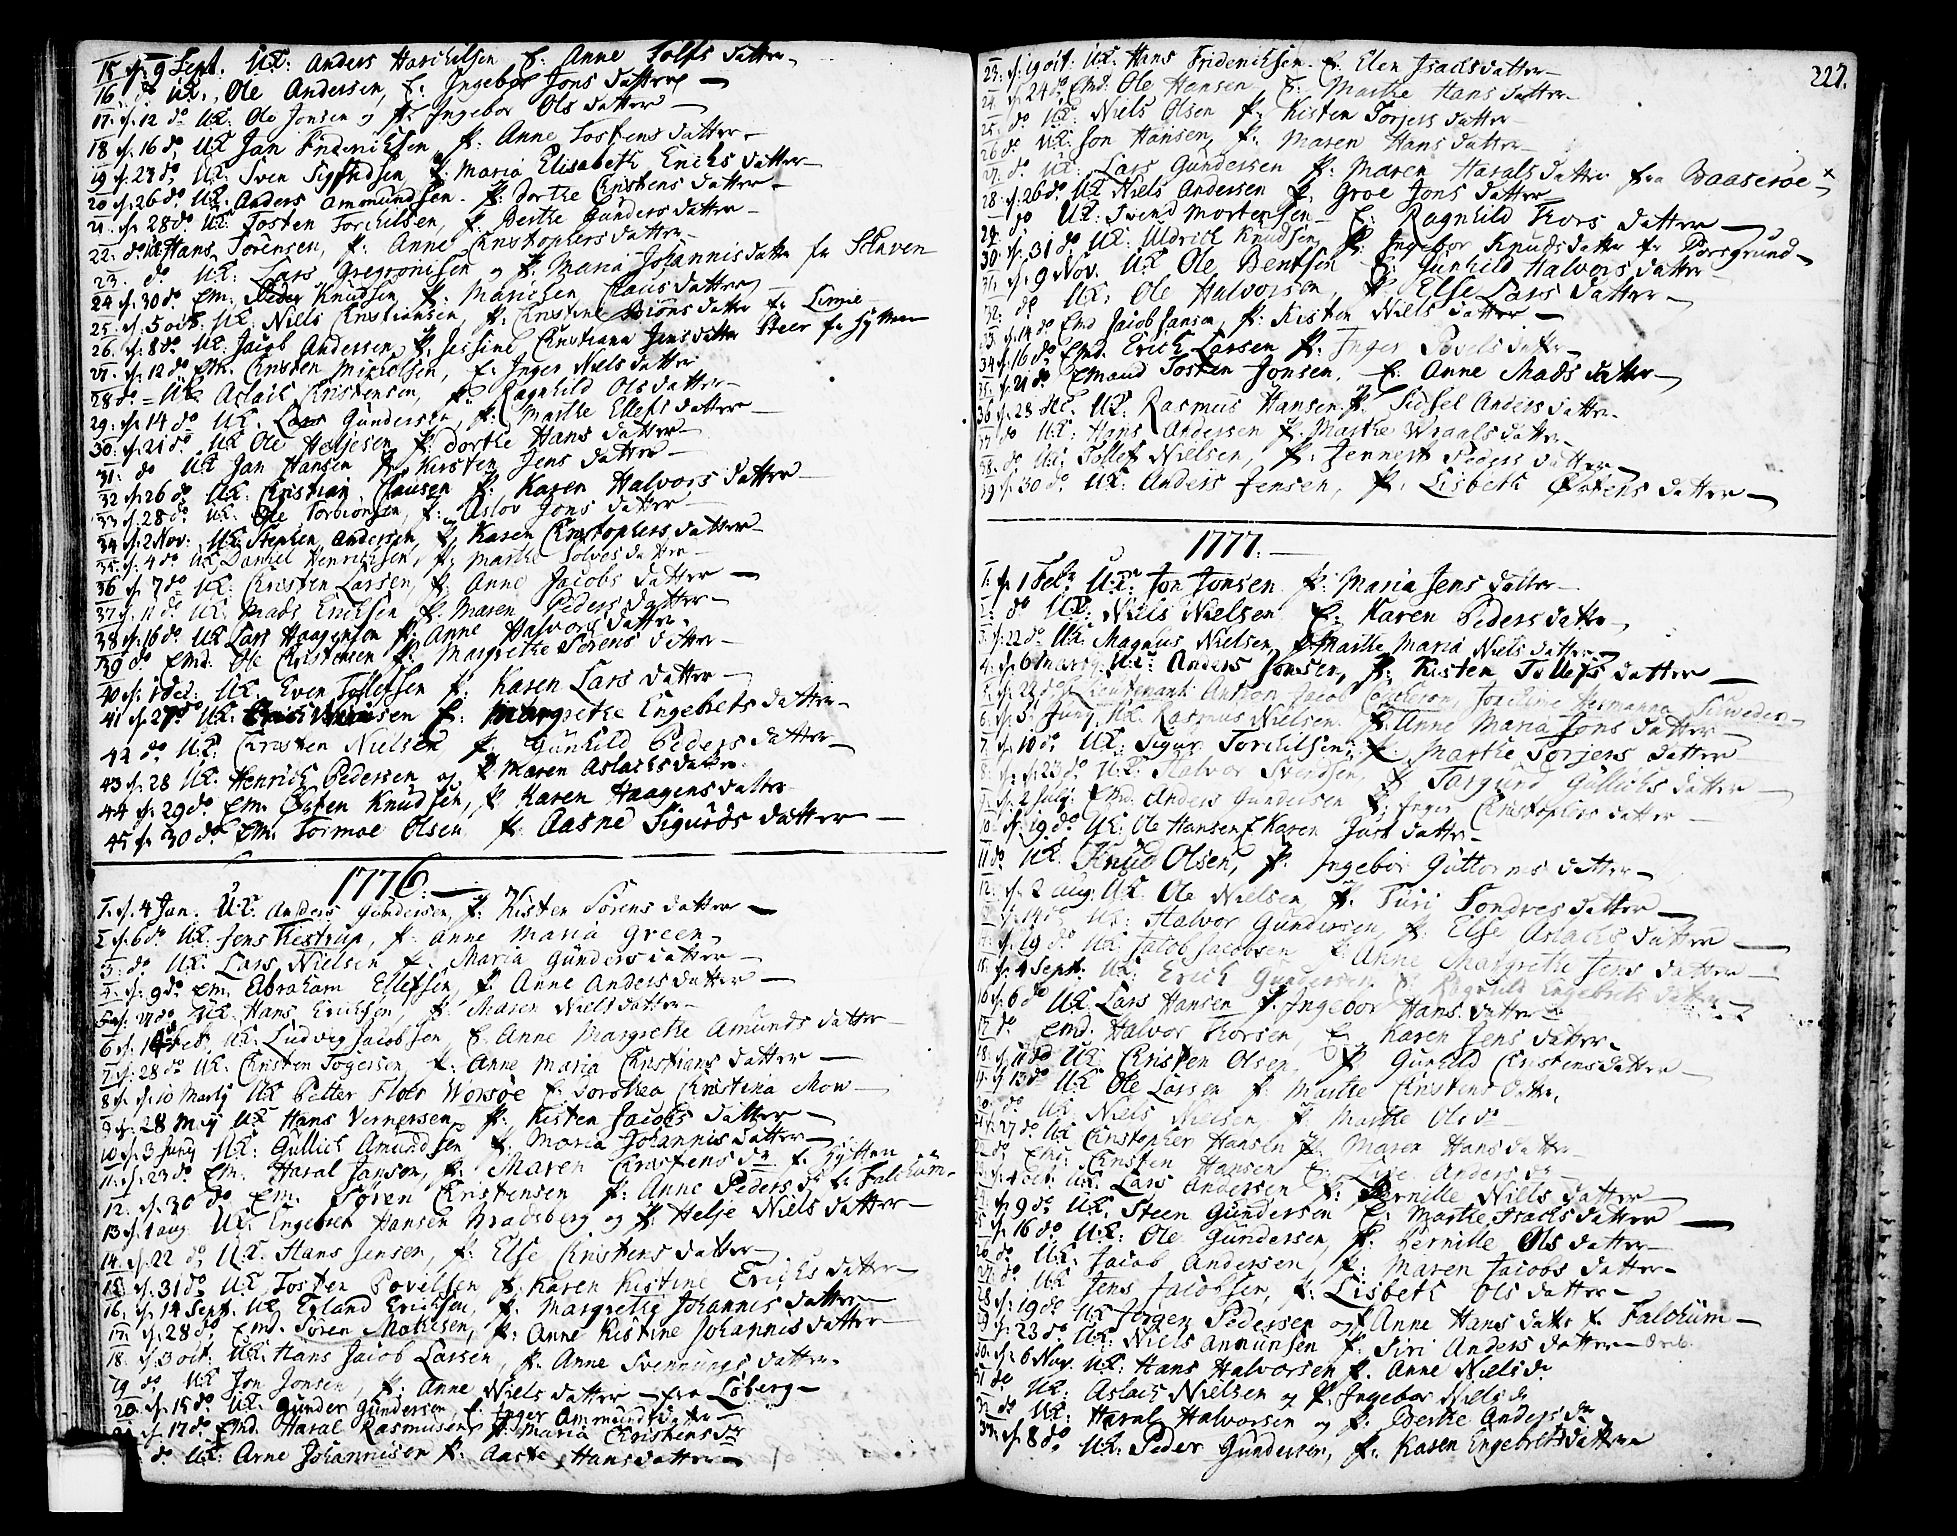 15 d. 9 Sept. UK: Anders Hansen P: Anne Tolfs datter
16 UK: Ole Andersen, P: Ingebor Jons datter
17. d. 12 do UK: Ole Jonsen og P: Ingebor Ols datter
18 d. 16 do UK Jan Friderichsen P: Anne Tostens datter
19 d. 23 do UK: Sven Sigfridsen P: Maria Elisabeth Erichs datter
20 d. 26 do UK. Anders Ammundsen P: Dorthe Christens datter
21. d. 28 do UK Tosten Torchilsen, P: Berthe Gunders datter
22: do UK Hans Sørensen, P: Anne Christophers datter
23. do UK: Lars Gregorisen og P: Maria Johannis datter fr Slaven
24 d. 30 do Em: Peder Knudsen P: Marichen Claus datter
25. d. 5 oct: UK: Niels Christiansen, P: Christine Biøns datter fr
26. d. 8 do UK: Jacob Andersen P: Jessine Christiana Jens datter Steer fr Hytten
27. d. 12 do Em: Christen Michelsen, P: Inger Niels datter
28 do UK Aslach Christensen, P: Ragnhild Ols datter
29: d. 14 do UK. Lars Gundersen, P: Marthe Ellefs datter
30: d. 21 do UK Ole Heljesen P: Dorthe Hans datter
31: do UK Jan Hansen P: Kirsten Jens datter
32 d. 26 do UK: Christian Clausen P: Karen Halvors datter
33 d. 28 do UK. Ole Torbiønsen, P: Aslov Jons datter
34 d. 2 Nov: UK: Stephen Andersen, P: Karen Christophers datter
35: d. 4 do UK Daniel Henrichsen, P: Marthe Solves datter
36 d. 7 do UK: Christen Larsen, P: Anne Jacobs datter
37 d. 11 do UK Mads Erichsen P: Maren Peders datter
38 d. 16 do UK Lars Haagensen P: Anne Halvors datter
39 do Emd. Ole Christensen P: Margrethe Sørens datter
40 d. 1 dec: UK. Even Tollefsen P: Karen Lars datter
41 d. 27 do UK: P: Margrethe Engebrets datter
42 do UK: Christen Nielsen P: Gunhild Peders datter
43 d. 28 UK. Henrich Pedersen og P Maren Aslachs datter
44 d. 29 do Em. Østen Knudsen, P: Karen Haagens datter
45 d. 30 do Em: Tormoe Olsen P: Aasne Sigurds datter
1776.
1. d. 4 Jan. UK: Anders Gundersen, P: Kisten Sørens datter
2 d. 6 do UK: Jens Kiestrup, P: Anne Maria Green
3: do UK. Lars Nielsen P: Maria Gunders datter
4. d. 9 do Em. Abraham Ellefsen, P: Anne Anders datter
5. d. 24 do UK: Hans Erichsen, P: Maren Niels datter
6 d. Feb. UK: Ludvig Jacobsen, P. Anne Margrethe Amunds datter
7 d. 28 do UK. Christen Togersen, P: Anne Maria Christians datter
8 d. 10 Marty UK Petter Floer Worsøe P: Dorothea Christina Mow
9 d. 28 May UK Hans Vernersen P: Kisten Jacobs datter
10 d. 3 Juny UK: Gullich Amundsen P: Maria Johannis datter
11. d. 23 do Em. Haral Jansen, P: Maren Christens dr fr Hytten
12. d. 30 do Em. Søren Christensen P: Anne Peders dr fr Falchum
13 d. 1 aug UK. Engebret Hansen Bradsberg og P: Helje Niels datter
14. d. 22 do UK. Hans Jensen, P: Else Christens datter
15 d. 31 do UK. Tosten Povelsen P. Karen Kistine Erichs datter
16. d. 14 Sept. UK Erland Erichsen, P: Margrethe Johannis datter
17. d. 28 do Emd. Søren Mathisen, P: Anne Kistine Johannis datter
18. d. 3 oct. UK. Hans Jacob Larsen, P. Anne Svennungs datter
19 do UK Jon Jonsen, P: Anne Niels datter fra Løberg
20 d. 15 do UK: Gunder Gundersen, P: Inger Ammunds datter
21 d. 17 do Emd. Haral Rasmusen P: Maria Christens dr
do UK: Arne Johannisen P: Aaste Hans datter
227.
23: d. 19 oct: UK: Hans Friderichsen P: Elen Isachs datter
24. d. 24 do Emd: Ole Hansen P: Marthe Hans datter
25. do UK: Niels Olsen P: Kisten Torjers datter
26 do UK: Jon Hansen, P: Maren Hans datter
27. do UK: Lars Gundersen P: Maren Harals datter fra Baaserøe
28. d. 26 do UK Niels Andersen P. Groe Jons datter
29. do UK: Svend Mortensen P: Ragnhild Thors datter
30. d. 31 do UK: Uldrich Knudsen P: Ingebor Knuds datter fr Porsgrund
31. d. 9 Nov. UK Ole Bentsen P: Gunhild Halvors datter
32: do UK: Ole Halvorsen P: Else Lars datter
33. d. 14 do Emd Jacob Jansen, P: Kisten Niels datter
34 d. 16 do Emd. Erich Larsen P: Inger Povels datter
35. d. 21 do Emand Tosten Jonsen. P: Anne Mads datter
36 d. 23 dec. UK: Rasmus Hansen P: Sidsel Anders datter
37 do UK: Hans Andersen P: Marthe Wraals datter
38. do UK: Tollef Nielsen, P: Jennert Peders datter
39 d. 30 do UK: Anders Jensen, P: Lisbeth Østens datter
1777.
1. d. 1 Feb. UK: Jon Jonsen P: Maria Jens datter
2. do UK: Niels Nielsen P: Karen Peders datter
3. d. 22 do UK. Magnus Nielsen, P: Marthe Maria Niels datter
4. d. 6 Marty UK: Anders Jonsen, P: Kisten Tollefs datter
5. d. 22 do Lieutenant Anthon Jacob Josephine Hermanna
6. d. 5 Juny. UK Rasmus Nielsen P: Anne Maria Jons datter
7. d. 10 do UK: Sigur Torchilsen P: Marthe Torjers datter
8. d. 23 do UK: Halvor Svendsen P Targierd Gullichs datter
9. d. 2 July. Emd. Anders Gundersen P: Inger Christophers datter
10 d. 19 do UK: Ole Hansen P Karen Just datter
11 do UK. Knud Olsen, P: Ingebor Guttorms datter
12. d. 2 aug. UK. Ole Nielsen, P. Turi Tondres datter
d. 14 do UK: Halvor Gundersen, P. Else Aslachs datter
d. 19 do UK Jacob Jacobsen P. Anne Margrethe Jens datter
15. d. 4 Sept: UK: Erich Gundersen P: Ragnild Engebrets datter
16 d. 6 do UK Lars Hansen P. Ingebor Hans datter
17 do Emd. Halvor Thorsen, P: Karen Jens datter
18. d. 11 do UK: Christen Olsen, P Gunhild Christens datter
19. d. 13 do UK Ole Larsen P: Marthe Christens datter
20. do UK. Niels Nielsen P. Marthe Ols dr
21. d. 27 do UK Christopher Hansen P. Maren Hans datter
22. do Emd: Christen Hansen P. Anders dr
23. d. 4 oct. UK. Lars Andersen P: Pernille Niels datter
24. d. 9 do UK. Steen Gundersen P: Marthe Isachs datter
25 d. 16 do UK: Ole Gundersen, P: Pernille Ols datter
26 do UK. Jacob Andersen, P: Maren Jacobs datter
27. do UK Jens Jacobsen, P: Lisbeth Ols datter
28 d. 19 do UK Jørgen Pedersen og P Anne Hans datter fr Falchum
29 d. 23 do UK: Niels Ammunsen P. Siri Anders datter
30. d. 6 Nov. UK: Hans Halvorsen P. Anne Niels dr
31 do UK: Aslach Nielsen og P: Ingebor Niels dr
32 do UK: Haral Halvorsen og P: Berthe Anders dr
33. d. 8 do UK: Peder Gundersen, P: Karen Engebrets datter